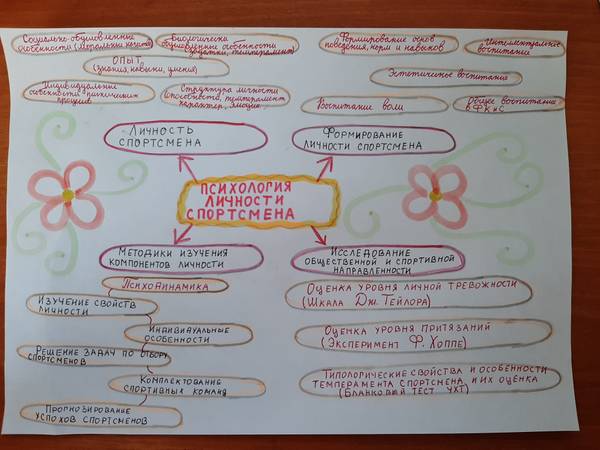 Социально-обусловленные
особенности (моральные качества)
Биологически
обусловленные особенности
(задатки, темперамент)
ОПЫТ
(знания, навыки, умения)
Индивидуальные
особенности психических
процессов
Структура личности
(способности, темперамент,
характер, эмоции)
Формирование основ
поведения, норм и навыков
Интеллектуальное
воспитание
Эстетическое воспитание
Воспитание воли
Общее воспитание
в ФК и С
Личность
спортсмена
Формирование
личности спортсмена
Психология
личности
спортсмена
Методики изучения
компонентов личности
Психодинамика
Изучение свойств
личности
Индивидуальные
особенности
Решение задач по отбору
спортсменов
Комплектование
спортивных команд
Прогнозирование
успехов спортсменов
Исследование
общественной и спортивной
направленности
Оценка уровня личной тревожности
(Шкала Дж. Тейлора)
Оценка уровня притязаний
(Эксперимент Ф. Хоппе)
Типологические свойства и особенности
темперамента спортсмена и их оценка
(Бланковый тест УХТ)